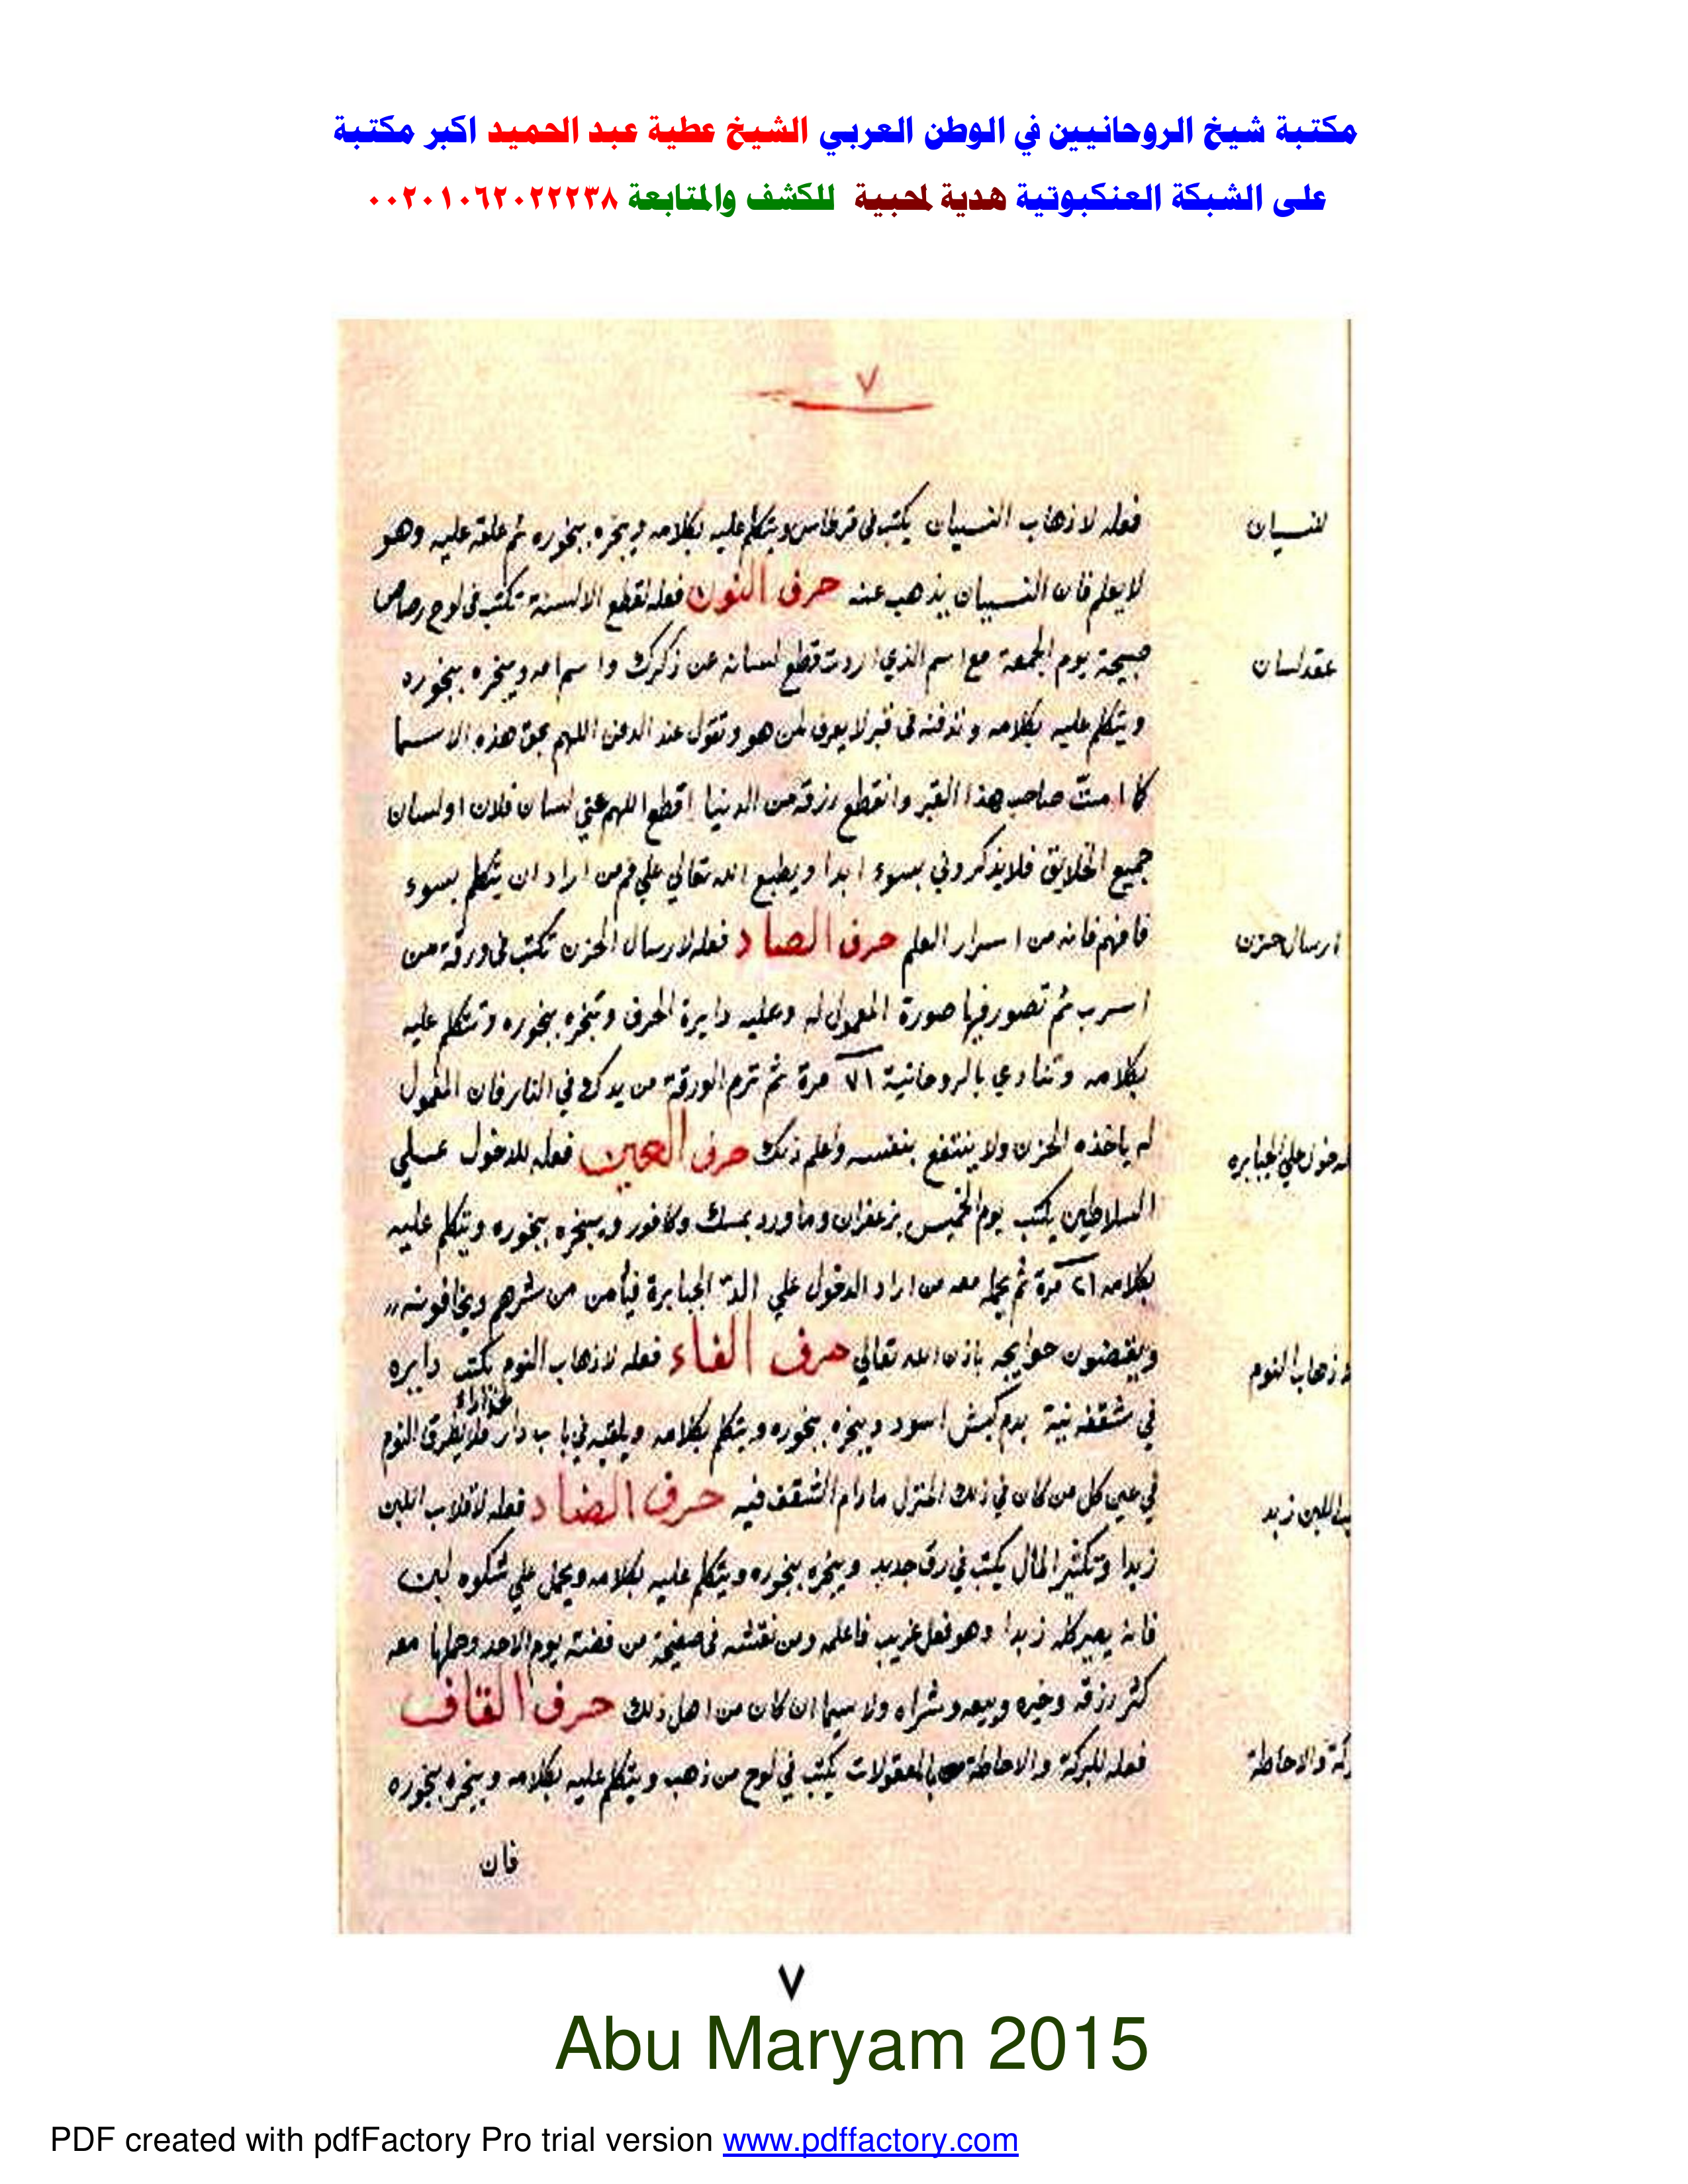 مكتبة شيخ الروحانيين في الوطن العربي الشيخ عطية عبد الحميد اكبر مكتبة
على الشبكة العنكبوتية هدية لمحبية للكشف والمتابعة ٠٠٢٠١٠٦٢٠٢٢٢٣٨
٧
لنسيان
فعله لاذهاب النسيان يكتب فى قرطاس ويتكلم عليه بكلامه ويبخره ببخوره ثم علقه عليه وهو
لا يعلم فان النسيان يذهب عنه حرف النون فعله لقطع الالسنة تكتب فى لوح رصاص
عقد لسان
صبيحة يوم الجمعة مع اسم الذي اردت قطع لسانه عن ذكرك واسم امه ويبخره ببخوره
ويتكلم عليه بكلامه وتدفنه فى قبر لا يعرف لمن هو وتقول عند الدفن اللهم بحق هذه الاسما
كما امت صاحب هذا القبر وانقطع رزقه من الدنيا اقطع اللهم عني لسان فلان او لسان
جميع الخلايق فلا يذكروني بسوء ابدا ويطبع الله تعالي علي فم من اراد ان يتكلم بسوء
ارسال حزن
فافهم فانه من اسرار العلم حرف الصاد فعله لارسال الحزن تكتب فى ورقة من
اسرب ثم تصور فيها صورة المعمول له وعليه دايرة الحرف وتبخره ببخوره وتتكلم عليه
بكلامه وتنادي بالروحانية ٧١ مرة ثم ترم الورقة من يدك في النار فان المعمول
دخول علي الجبابره
له ياخذه الحزن ولا ينتفع بنفسه واعلم ذلك حرف العين فعله للدخول علي
السلاطين يكتب يوم الخميس بزعفران وماورد بمسك وكافور ويبخره ببخوره ويتكلم عليه
بكلامه ٢١ مرة ثم يحمله معه من اراد الدخول علي الجبابرة فيأمن من شرهم ويخافونه
اذهاب النوم
ويقضون حوايجه باذن الله تعالي حرف الفاء فعله لاذهاب النوم يكتب دايره
في شقفه نية بدم كبش اسود ويبخره ببخوره ويتكلم بكلامه ويلقيه في باب دار فلا يطرق النوم
في عين كل من كان في ذلك المنزل مادام الشقف فيه حرف الضاد فعله لاقلاب اللبن
اللبن زبد
زبدا وتكثير المال يكتب في رق جديد ويبخره ببخوره ويتكلم عليه بكلامه ويحمل علي شكوه لبن
فانه يصير كله زبدا وهو فعل غريب فاعلمه ومن نقشه فى صفيحة من فضة يوم الاحد وحملها معه
كثر رزقه وخيره وبيعه وشراه ولا سيما ان كان من اهل ذلك حرف القاف
بركة والاحاطة
فعله للبركة والاحاطة بالمعقولات يكتب في لوح من ذهب ويتكلم عليه بكلامه ويبخره ببخوره
فان
٧
Abu Maryam 2015
PDF created with pdfFactory Pro trial version www.pdffactory.com